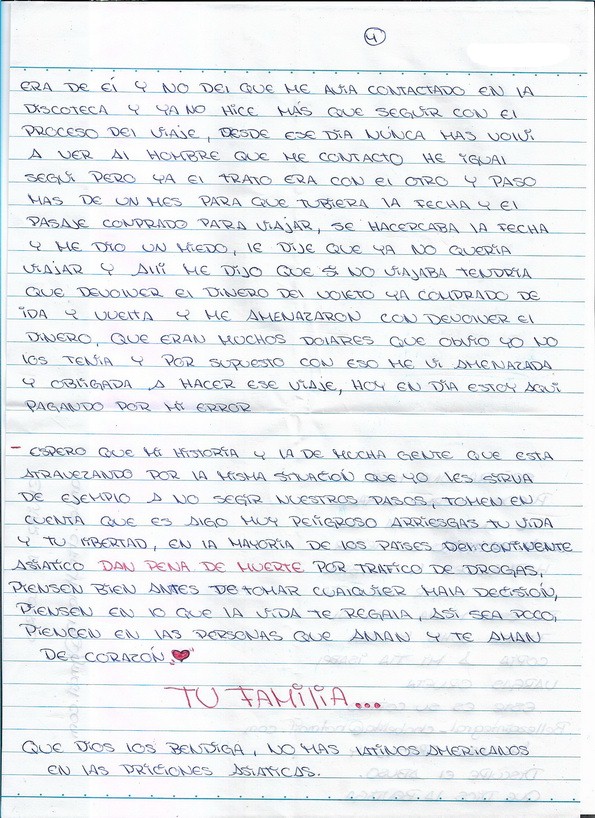 4
ERA DE ÉL Y NO DEL QUE ME AVIA CONTACTADO EN LA
DISCOTECA Y YA NO HICE MÁS QUE SEGUIR CON EL
PROCESO DEL VIAJE, DESDE ESE DIA NÚNCA MAS VOLVI
A VER AL HOMBRE QUE ME CONTACTO HE IGUAL
SEGUI PERO YA EL TRATO ERA CON EL OTRO Y PASO
MAS DE UN MES PARA QUE TUBIERA LA FECHA Y EL
PASAJE COMPRADO PARA VIAJAR, SE HACERCABA LA FECHA
Y ME DIO UN MIEDO, LE DIJE QUE YA NO QUERIA
VIAJAR Y ALLÍ ME DIJO QUE SI NO VIAJABA TENDRIA
QUE DEVOLVER EL DINERO DEL VOLETO YA COMPRADO DE
IDA Y VUELTA Y ME AMENAZARON CON DEVOLVER EL
DINERO, QUE ERAN MUCHOS DOLARES QUE OBVIO YO NO
LOS TENIA Y POR SUPUESTO CON ESO ME VI AMENAZADA
Y OBLIGADA A HACER ESE VIAJE, HOY EN DÍA ESTOY AQUI
PAGANDO POR MI ERROR
- ESPERO QUE MI HISTORIA Y LA DE MUCHA GENTE QUE ESTA
ATRAVEZANDO POR LA MISMA SITUACIÓN QUE YO LES SIRVA
DE EJEMPLO A NO SEGIR NUESTROS PASOS, TOMEN EN
CUENTA QUE ES ALGO MUY PELIGROSO ARRIESGAS TU VIDA
Y TU LIBERTAD, EN LA MAYORIA DE LOS PAISES DEL CONTINENTE
ASIATICO DAN PENA DE MUERTE POR TRAFICO DE DROGAS,
PIENSEN BIEN ANTES DE TOMAR CUALQUIER MALA DECISIÓN,
PIENSEN EN LO QUE LA VIDA TE REGALA, ASI SEA POCO,
PIENCEN EN LAS PERSONAS QUE AMAN Y TE AMAN
DE CORAZÓN,
TU FAMILIA...
QUE DIOS LOS BENDIGA, NO MAS LATINOS AMERICANOS
EN LAS PRICIONES ASIATICAS.